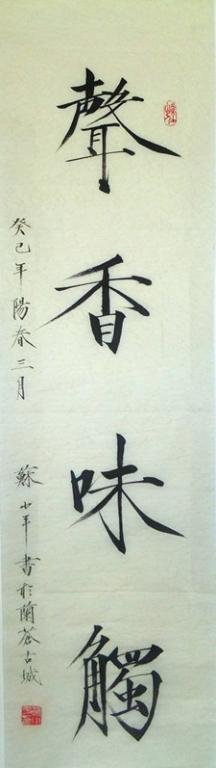 聲香味觸
癸已年陽春三月
蘇小年書於蘭蒼古城